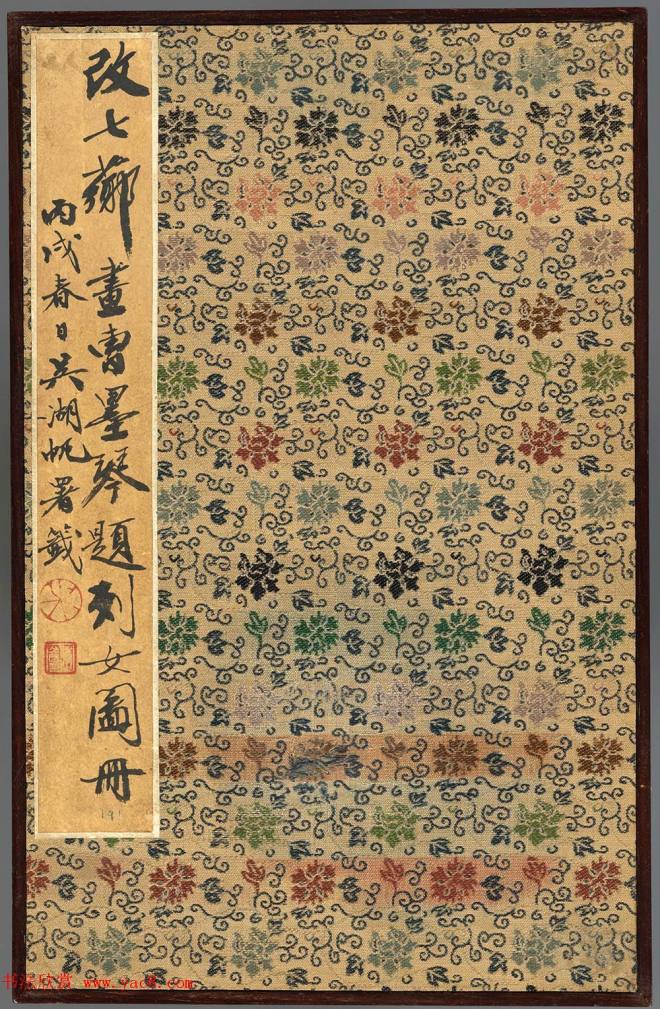 改七薌畫曹墨琴題列女圖冊
丙戌春日吳湖帆署籤
书法欣赏 www.yac8.com